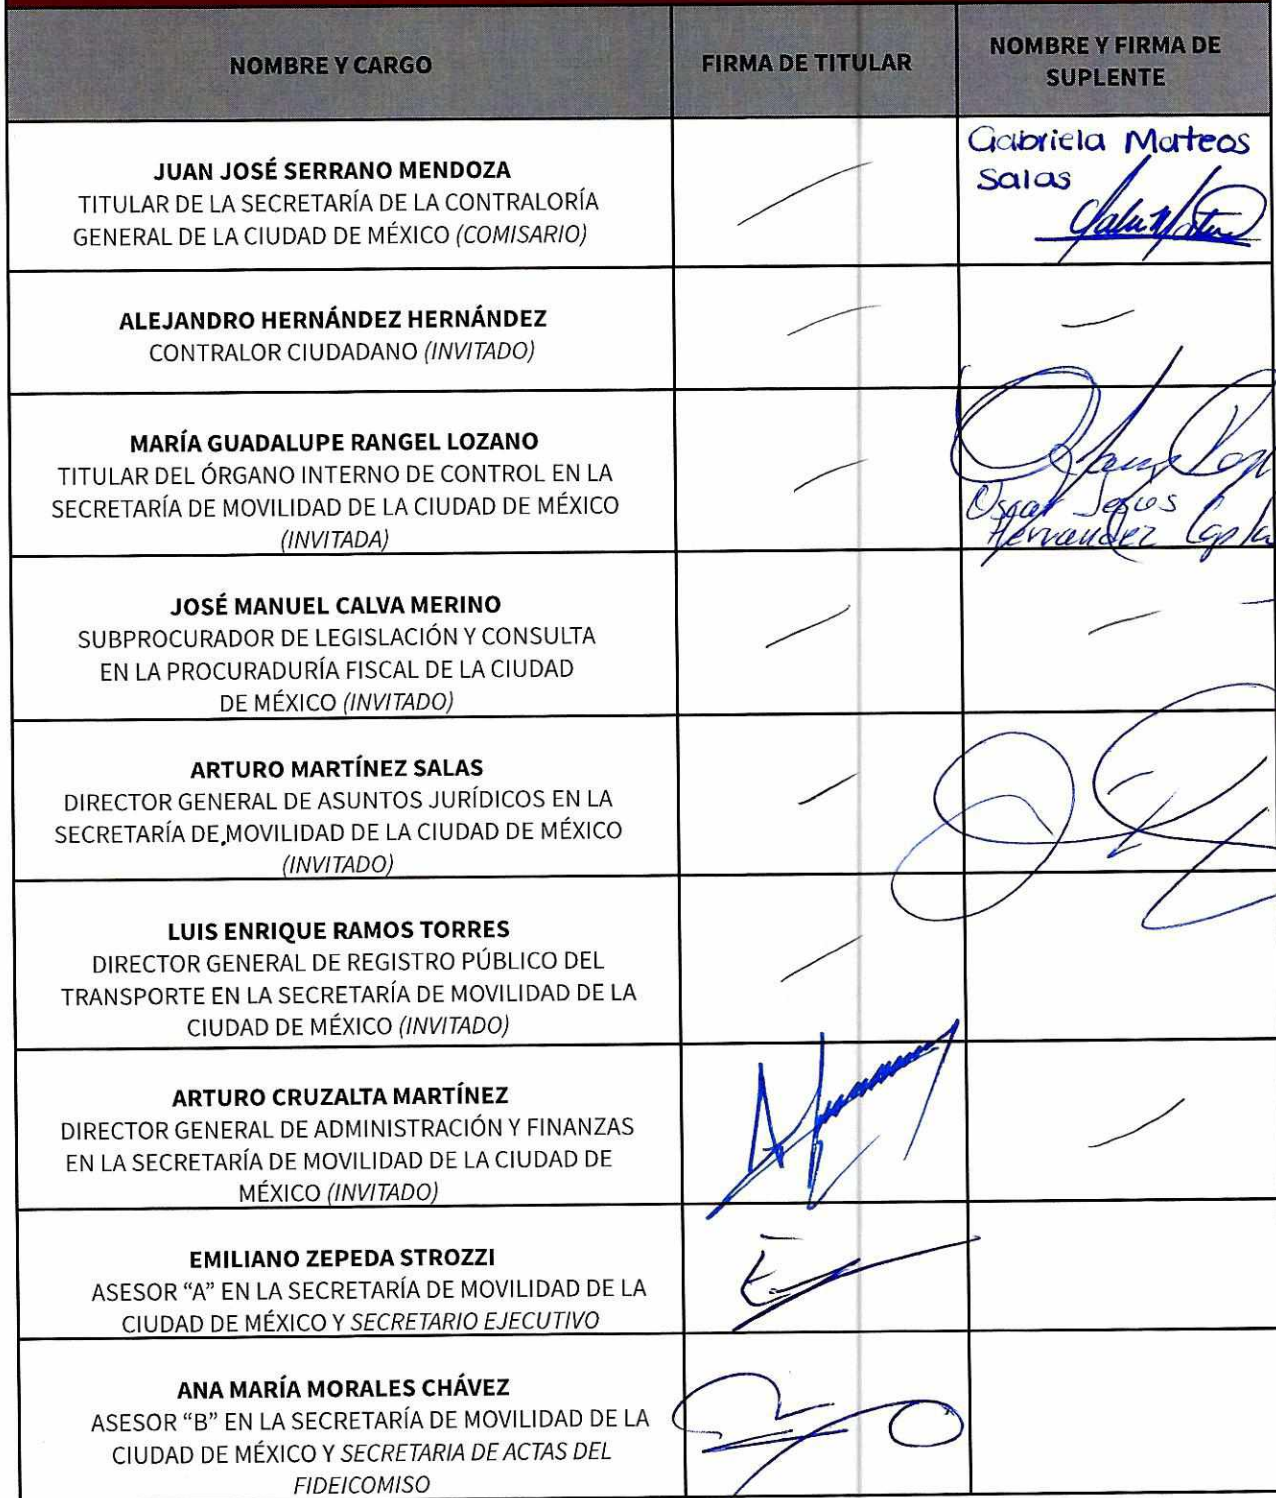 NOMBRE Y CARGO
FIRMA DE TITULAR
NOMBRE Y FIRMA DE
SUPLENTE
JUAN JOSÉ SERRANO MENDOZA
TITULAR DE LA SECRETARÍA DE LA CONTRALORÍA
GENERAL DE LA CIUDAD DE MÉXICO (COMISARIO)
Gabriela Mateos
Salas
ALEJANDRO HERNÁNDEZ HERNÁNDEZ
CONTRALOR CIUDADANO (INVITADO)
MARÍA GUADALUPE RANGEL LOZANO
TITULAR DEL ÓRGANO INTERNO DE CONTROL EN LA
SECRETARÍA DE MOVILIDAD DE LA CIUDAD DE MÉXICO
(INVITADA)
Oscar Jesus
Hernandez
JOSÉ MANUEL CALVA MERINO
SUBPROCURADOR DE LEGISLACIÓN Y CONSULTA
EN LA PROCURADURÍA FISCAL DE LA CIUDAD
DE MÉXICO (INVITADO)
ARTURO MARTÍNEZ SALAS
DIRECTOR GENERAL DE ASUNTOS JURÍDICOS EN LA
SECRETARÍA DE MOVILIDAD DE LA CIUDAD DE MÉXICO
(INVITADO)
LUIS ENRIQUE RAMOS TORRES
DIRECTOR GENERAL DE REGISTRO PÚBLICO DEL
TRANSPORTE EN LA SECRETARÍA DE MOVILIDAD DE LA
CIUDAD DE MÉXICO (INVITADO)
ARTURO CRUZALTA MARTÍNEZ
DIRECTOR GENERAL DE ADMINISTRACIÓN Y FINANZAS
EN LA SECRETARÍA DE MOVILIDAD DE LA CIUDAD DE
MÉXICO (INVITADO)
EMILIANO ZEPEDA STROZZI
ASESOR “A” EN LA SECRETARÍA DE MOVILIDAD DE LA
CIUDAD DE MÉXICO Y SECRETARIO EJECUTIVO
ANA MARÍA MORALES CHÁVEZ
ASESOR “B” EN LA SECRETARÍA DE MOVILIDAD DE LA
CIUDAD DE MÉXICO Y SECRETARIA DE ACTAS DEL
FIDEICOMISO